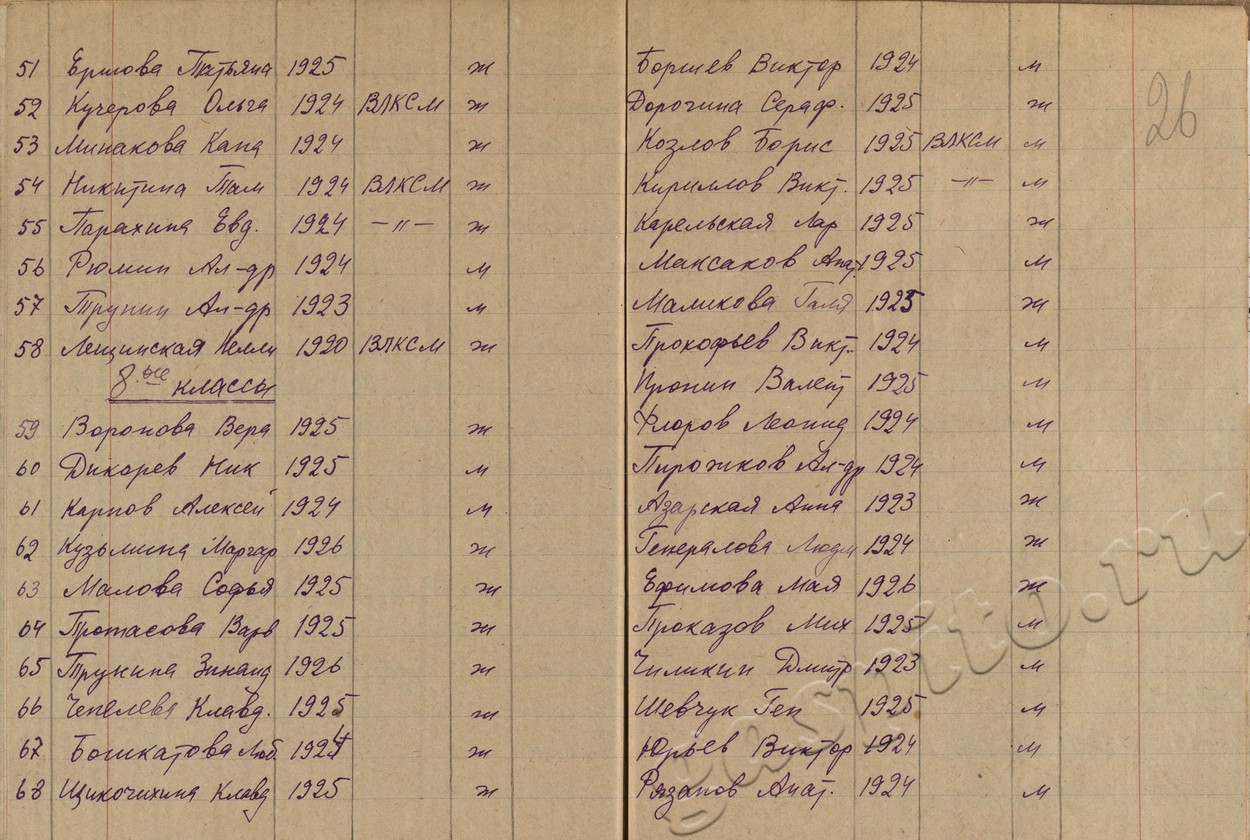 51 Ершова Татьяна 1925 ж
52 Кучерова Ольга 1924 ВЛКСМ ж
53 Минакова Капа 1924 ж
54 Никитина Там 1924 ВЛКСМ ж
55 Парахина Евд. 1924 —"— ж
56 Рюмин Ал-др 1924 м
57 Трунин Ал-др 1923 м
58 Лещинская Нелли 1920 ВЛКСМ ж
8.ые классы
59 Воронова Вера 1925 ж
60 Дикарев Ник 1925 м
61 Карпов Алексей 1924 м
62 Кузьмина Маргар 1926 ж
63 Малова Софья 1925 ж
64 Протасова Варв 1925 ж
65 Трунина Зинаид 1926 ж
66 Чепелева Клавд. 1925 ж
67 Башкатова Люб. 1924 ж
68 Щикочихина Клавд 1925 ж
26
Борщев Виктор 1924 м
Дорогина Сераф. 1925 ж
Козлов Борис 1925 ВЛКСМ м
Кириллов Викт. 1925 —"— м
Карельская Лар 1925 ж
Максаков Анат 1925 м
Маликова Галя 1925 ж
Прокофьев Викт. 1924 м
Пронин 1925 м
Флоров Леонид 1924 м
Пирожков Ал-др 1924 м
Азарская Анна 1923 ж
Генералова Людм 1924 ж
Ефимова Мая 1926 ж
Проказов Мих 1925 м
Чиликин Дмитр 1923 м
Шевчук Ген 1925 м
Юрьев Виктор 1924 м
Рязанов Анат. 1924 м
gaspito.ru